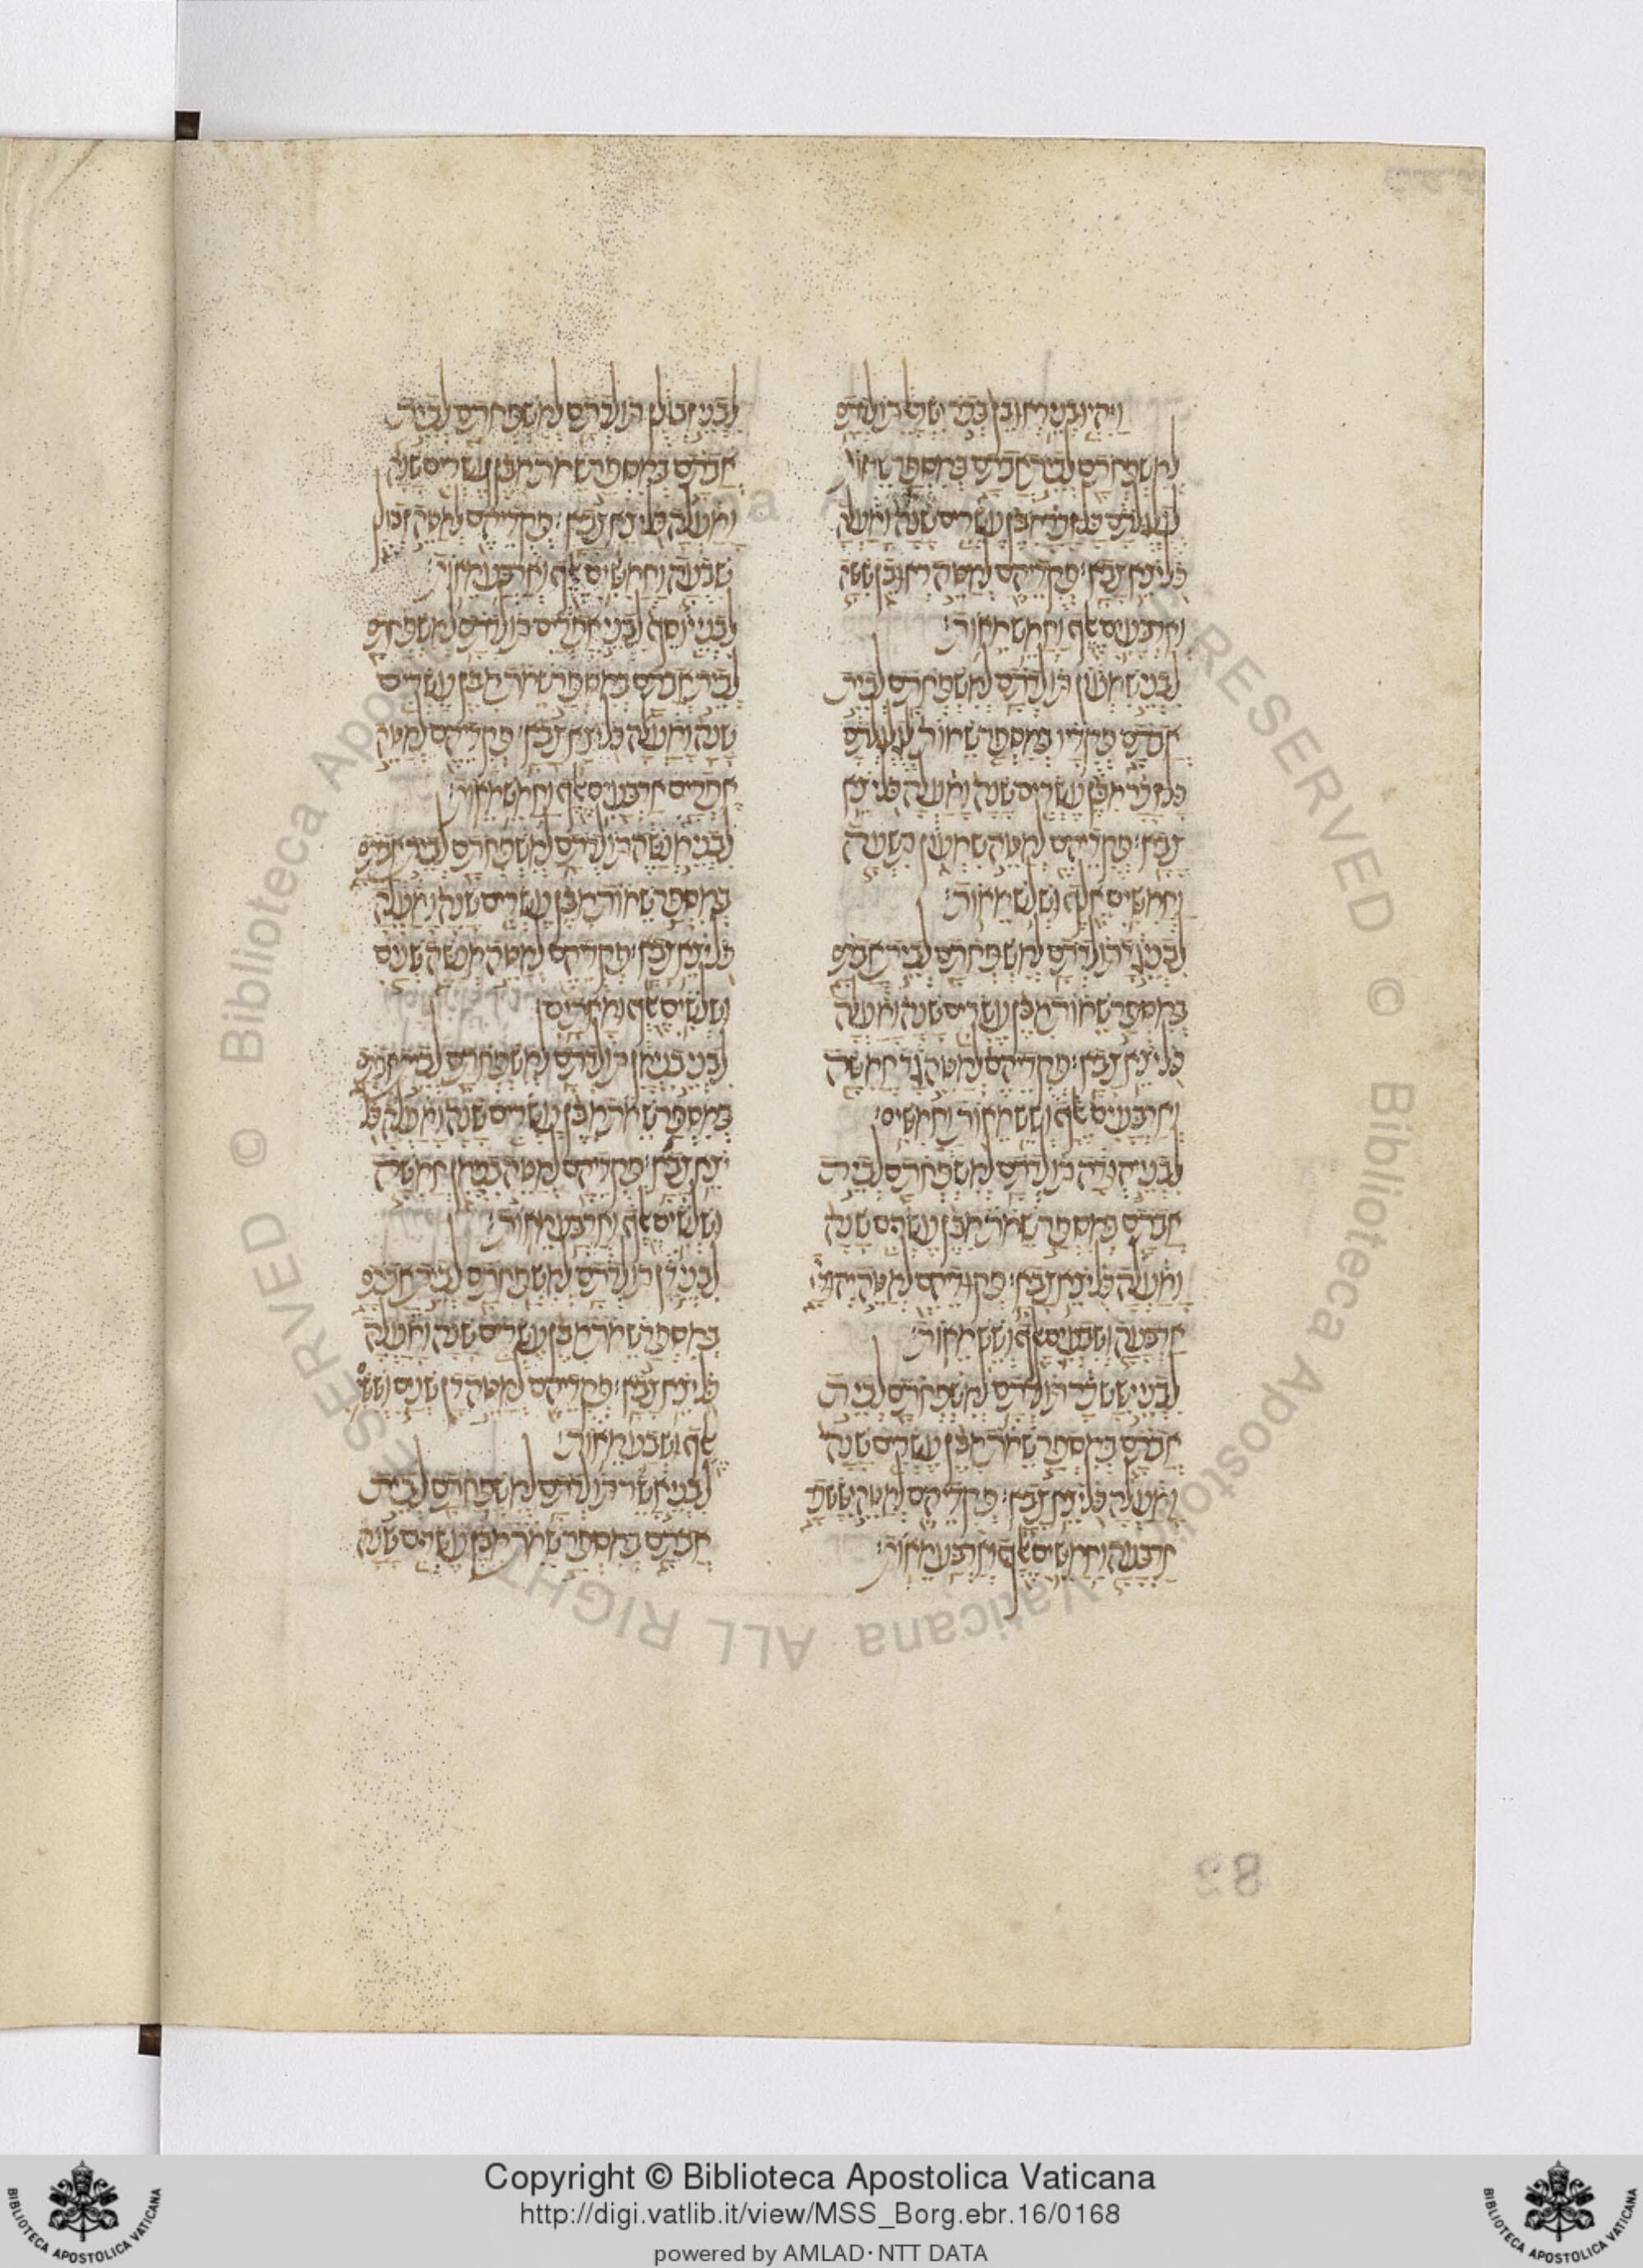 ויהיו בני ראובן בכר ישראל תולדתם
למשפחתם לבית אבתם במספר שמות
לגלגלתם כל זכר מבן עשרים שנה ומעלה
כל יצא צבא׃ פקדיהם למטה ראובן ששה
וארבעים אלף וחמש מאות׃
לבני שמעון תולדתם למשפחתם לבית
אבתם פקדיו במספר שמות לגלגלתם
כל זכר מבן עשרים שנה ומעלה כל יצא
צבא׃ פקדיהם למטה שמעון תשעה
וחמשים אלף ושלש מאות׃
לבני גד תולדתם למשפחתם לבית אבתם
במספר שמות מבן עשרים שנה ומעלה
כל יצא צבא׃ פקדיהם למטה גד חמשה
וארבעים אלף ושש מאות וחמשים׃
לבני יהודה תולדתם למשפחתם לבית
אבתם במספר שמת מבן עשרים שנה
ומעלה כל יצא צבא׃ פקדיהם למטה יהודה
ארבעה ושבעים אלף ושש מאות׃
לבני יששכר תולדתם למשפחתם לבית
אבתם במספר שמת מבן עשרים שנה
ומעלה כל יצא צבא׃ פקדיהם למטה יששכר
ארבעה וחמשים אלף וארבע מאות׃
לבני זבולן תולדתם למשפחתם לבית
אבתם במספר שמת מבן עשרים שנה
ומעלה כל יצא צבא׃ פקדיהם למטה זבולן
שבעה וחמשים אלף וארבע מאות׃
לבני יוסף לבני אפרים תולדתם למשפחתם
לבית אבתם במספר שמת מבן עשרים
שנה ומעלה כל יצא צבא׃ פקדיהם למטה
אפרים ארבעים אלף וחמש מאות׃
לבני מנשה תולדתם למשפחתם לבית אבתם
במספר שמות מבן עשרים שנה ומעלה
כל יצא צבא׃ פקדיהם למטה מנשה שנים
ושלשים אלף ומאתים׃
לבני בנימן תולדתם למשפחתם לבית אבתם
במספר שמת מבן עשרים שנה ומעלה כל
יצא צבא׃ פקדיהם למטה בנימן חמשה
ושלשים אלף וארבע מאות׃
לבני דן תולדתם למשפחתם לבית אבתם
במספר שמת מבן עשרים שנה ומעלה
כל יצא צבא׃ פקדיהם למטה דן שנים וששים
אלף ושבע מאות׃
לבני אשר תולדתם למשפחתם לבית
אבתם במספר שמת מבן עשרים שנה
83
© Biblioteca Apostolica Vaticana ALL RIGHTS RESERVED © Biblioteca Apostolica Vaticana ALL RIGHTS RESERVED
BIBLIOTECA APOSTOLICA VATICANA
Copyright © Biblioteca Apostolica Vaticana
http://digi.vatlib.it/view/MSS_Borg.ebr.16/0168
powered by AMLAD · NTT DATA
BIBLIOTECA APOSTOLICA VATICANA